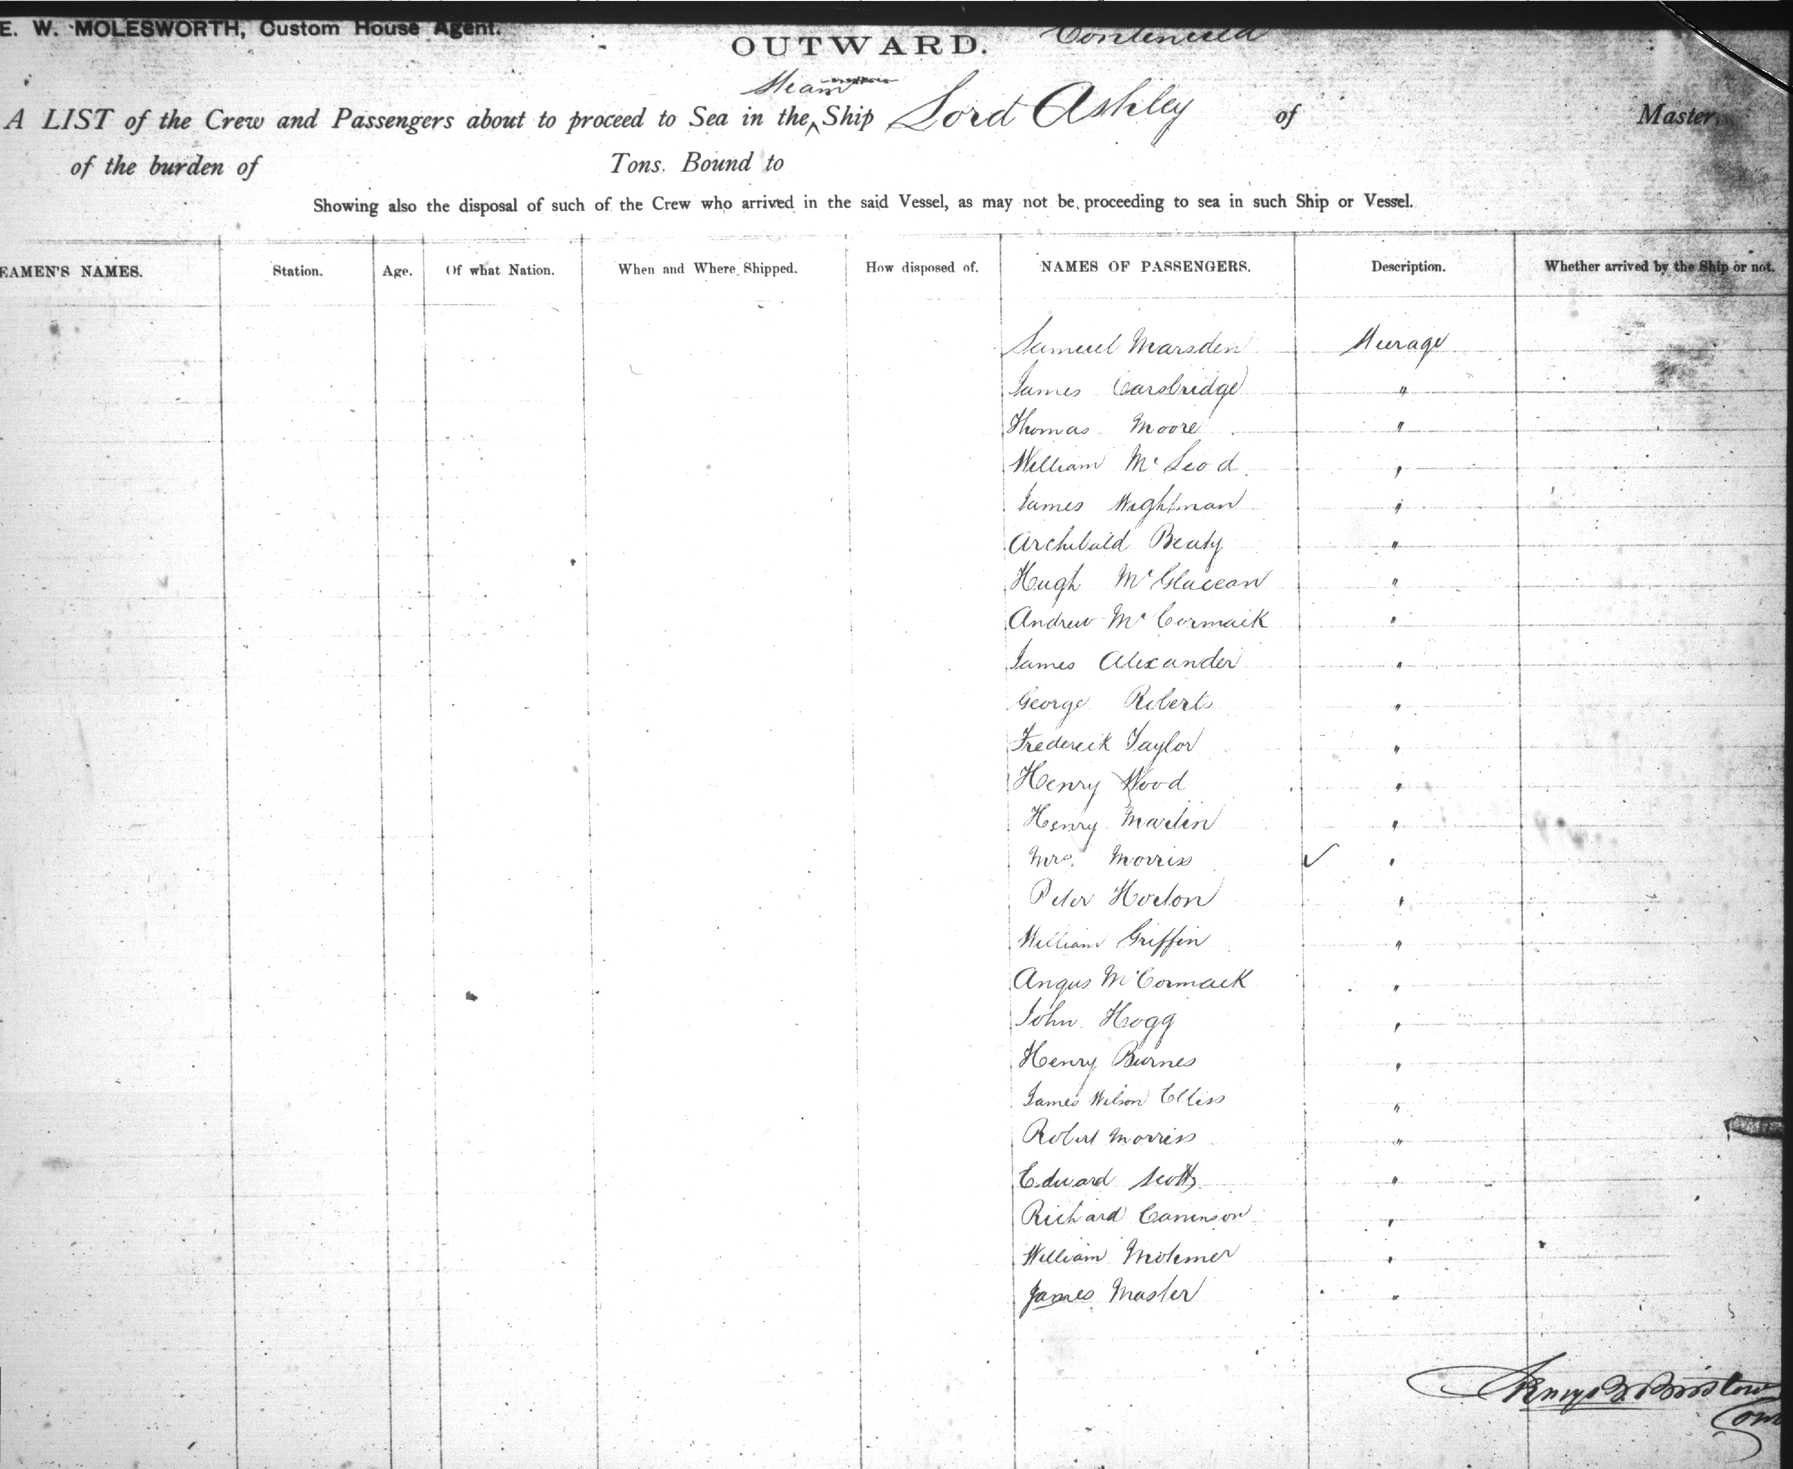 E. W. MOLESWORTH, Custom House Agent.
OUTWARD. Continued
Steam
A LIST of the Crew and Passengers about to proceed to Sea in the Ship Lord Ashley of Master,
of the burden of Tons. Bound to
Showing also the disposal of such of the Crew who arrived in the said Vessel, as may not be proceeding to sea in such Ship or Vessel.
EAMEN'S NAMES. Station. Age. Of what Nation. When and Where Shipped. How disposed of. NAMES OF PASSENGERS. Description. Whether arrived by the Ship or not.
Samuel Marsden Steerage
James Carsbridge "
Thomas Moore "
William Mc Leod "
James Wightman "
Archibald Beaty "
Hugh Mc "
Andrew Mc Cormack "
James Alexander "
George Roberts "
Frederick Taylor "
Henry Wood "
Henry Martin "
Mrs. Morriss ✓ "
Peter Horton "
William Griffin "
Angus McCormack "
John Hogg "
Henry Burnes "
James Wilson Elliss "
Robert Morriss "
Edward Scott "
Richard "
William "
James Master "
Bristow